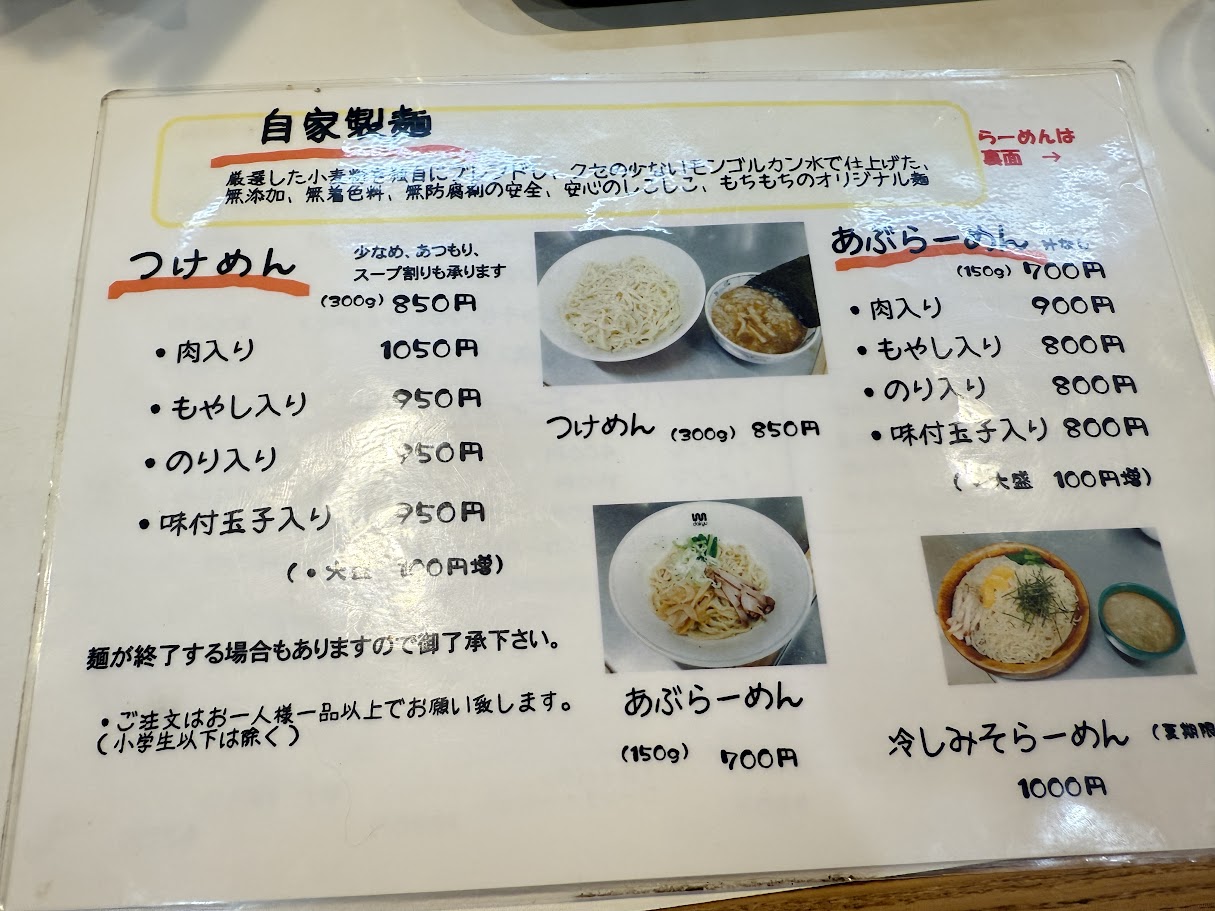 自家製麺
厳選した小麦粉を独自にブレンドし、クセの少ないモンゴルカン水で仕上げた、
無添加、無着色料、無防腐剤の安全、安心のしこしこ、もちもちのオリジナル麺
らーめんは
裏面 →
つけめん
少なめ、あつもり、
スープ割りも承ります
(300g) 850円
・肉入り 1050円
・もやし入り 950円
・のり入り 950円
・味付玉子入り 950円
(・大盛 100円増)
麺が終了する場合もありますので御了承下さい。
・ご注文はお一人様一品以上でお願い致します。
(小学生以下は除く)
つけめん (300g) 850円
あぶらーめん
(150g) 700円
あぶらーめん 汁なし
(150g) 700円
・肉入り 900円
・もやし入り 800円
・のり入り 800円
・味付玉子入り 800円
(・大盛 100円増)
冷しみそらーめん (夏期限
1000円